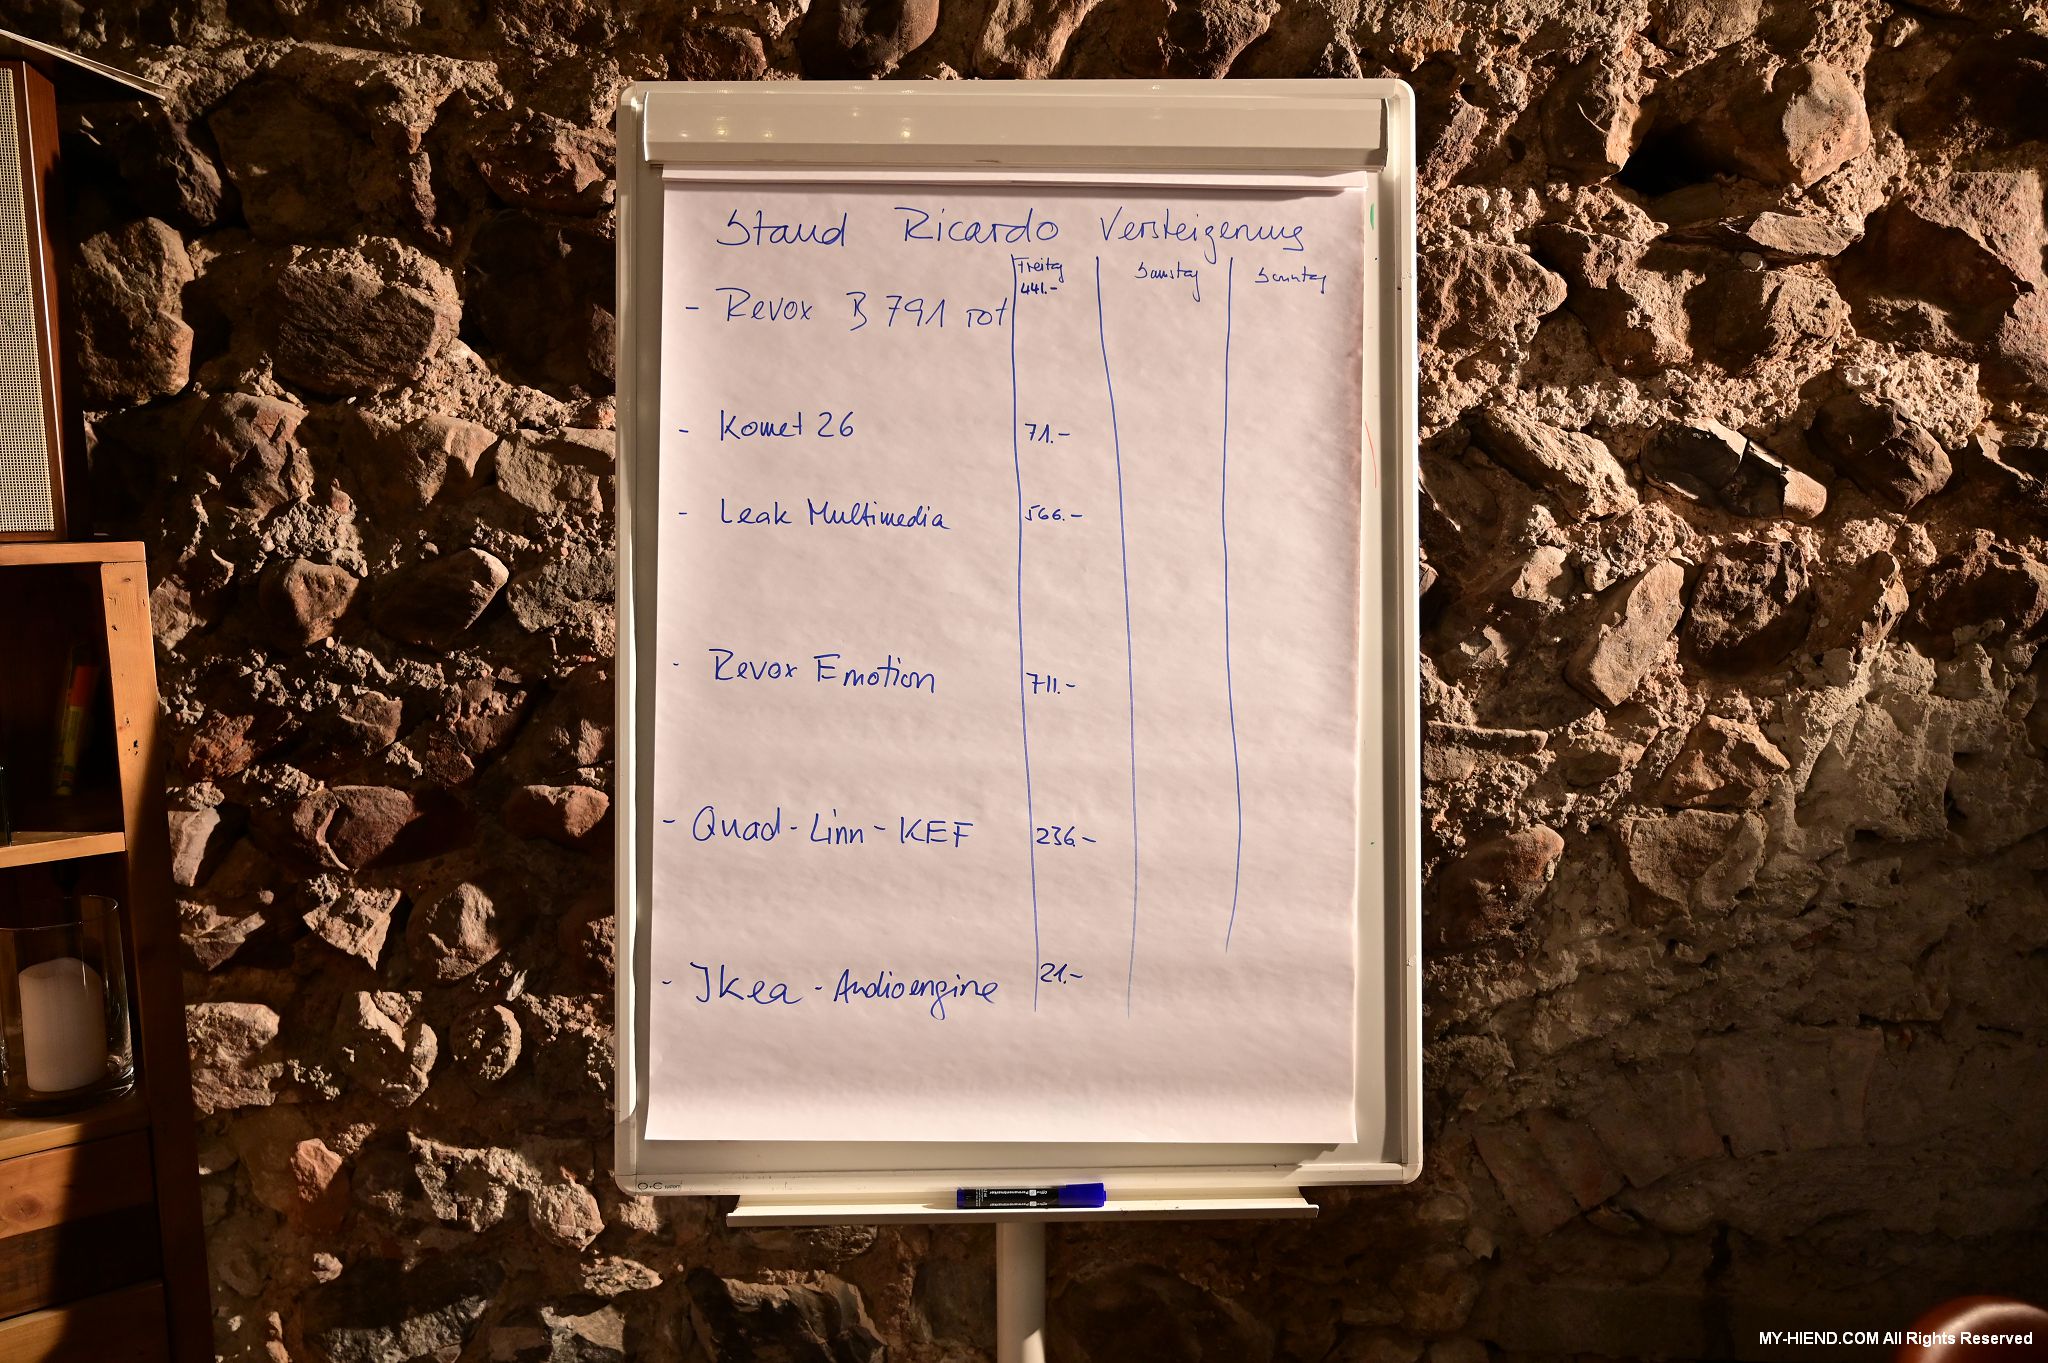 Stand Ricardo Versteigerung
Freitag Samstag Sonntag
441.-
- Revox B 791 rot
- Komet 26 71.-
- Leak Multimedia 566.-
- Revox Emotion 711.-
- Quad - Linn - KEF 236.-
- Ikea - Audioengine 21.-
Permanentmarker
MY-HIEND.COM All Rights Reserved